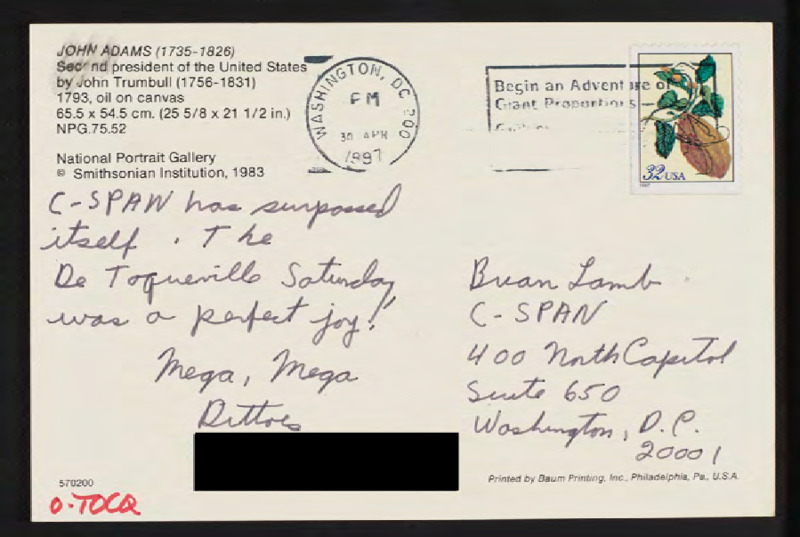 JOHN ADAMS (1735-1826)
Second president of the United States
by John Trumbull (1756-1831)
1793, oil on canvas
65.5 x 54.5 cm. (25 5/8 x 21 1/2 in.)
NPG.75.52
National Portrait Gallery
© Smithsonian Institution, 1983
WASHINGTON, DC 200
PM
30 APR
1997
Begin an Adventure of
Giant Proportions
32 USA
1997
C-SPAN has surpassed
itself. The
De Toqueville Saturday
was a perfect joy!
Mega, Mega
Dittoes
Brian Lamb
C-SPAN
400 North Capitol
Suite 650
Washington, D.C.
20001
570200
O-TOCQ
Printed by Baum Printing, Inc., Philadelphia, Pa., U.S.A.